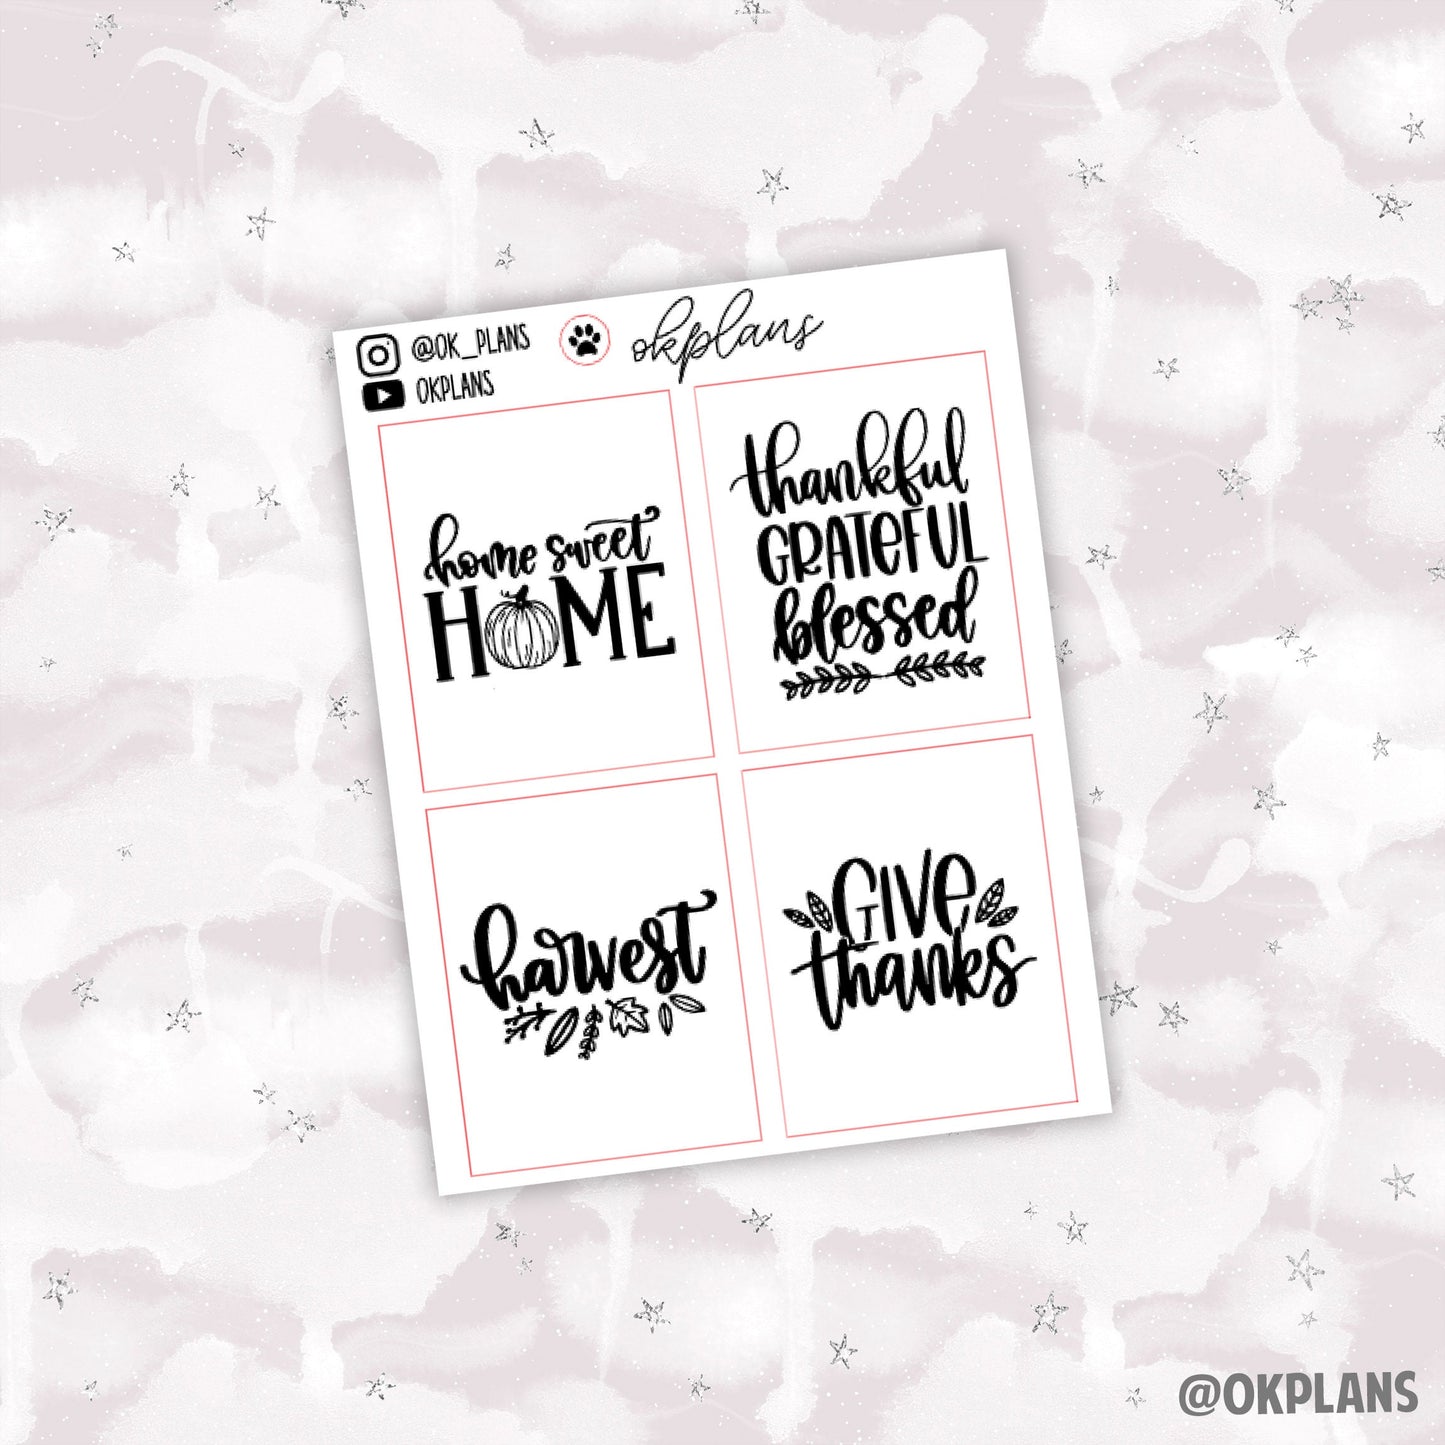 @OK_PLANS
OKPLANS
okplans
home sweet
HOME
thankful
GRATEFUL
blessed
harvest
GIVE
thanks
@OKPLANS